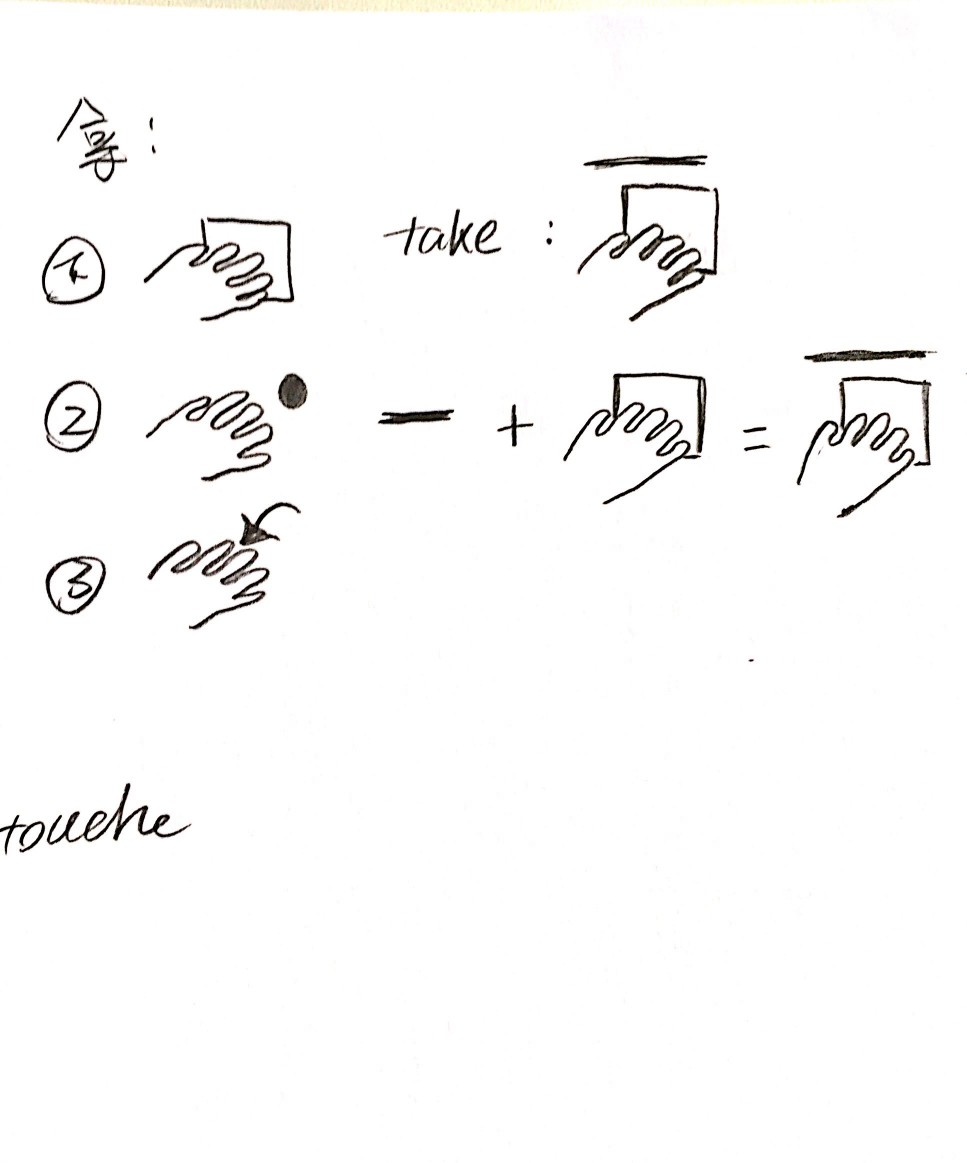 拿：
① take :
② — + =
③
touche